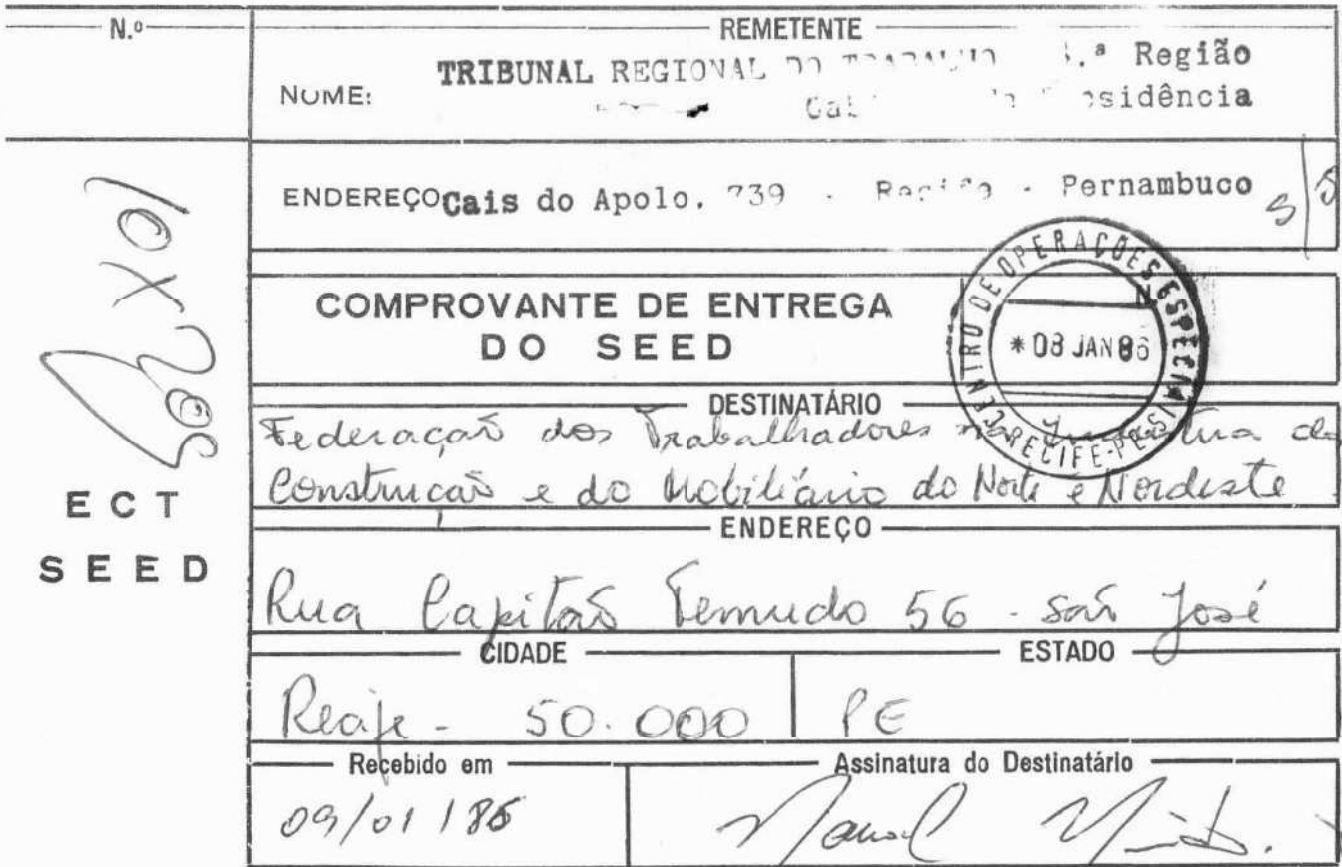 N.º
REMETENTE
NOME: TRIBUNAL REGIONAL DO TRABALHO .ª Região
Presidência
ENDEREÇO Cais do Apolo, 739 - Recife - Pernambuco
COMPROVANTE DE ENTREGA
DO SEED
CENTRO DE OPERAÇÕES ESPECIAIS
* 08 JAN 86
RECIFE-PE
DESTINATÁRIO
Federação dos Trabalhadores na Indústria da
Construção e do Mobiliário do Norte e Nordeste
ENDEREÇO
Rua Capitão Temudo 56 - São José
CIDADE
ESTADO
Recife - 50.000
PE
Recebido em
Assinatura do Destinatário
09/01/86
Manoel
ECT
SEED